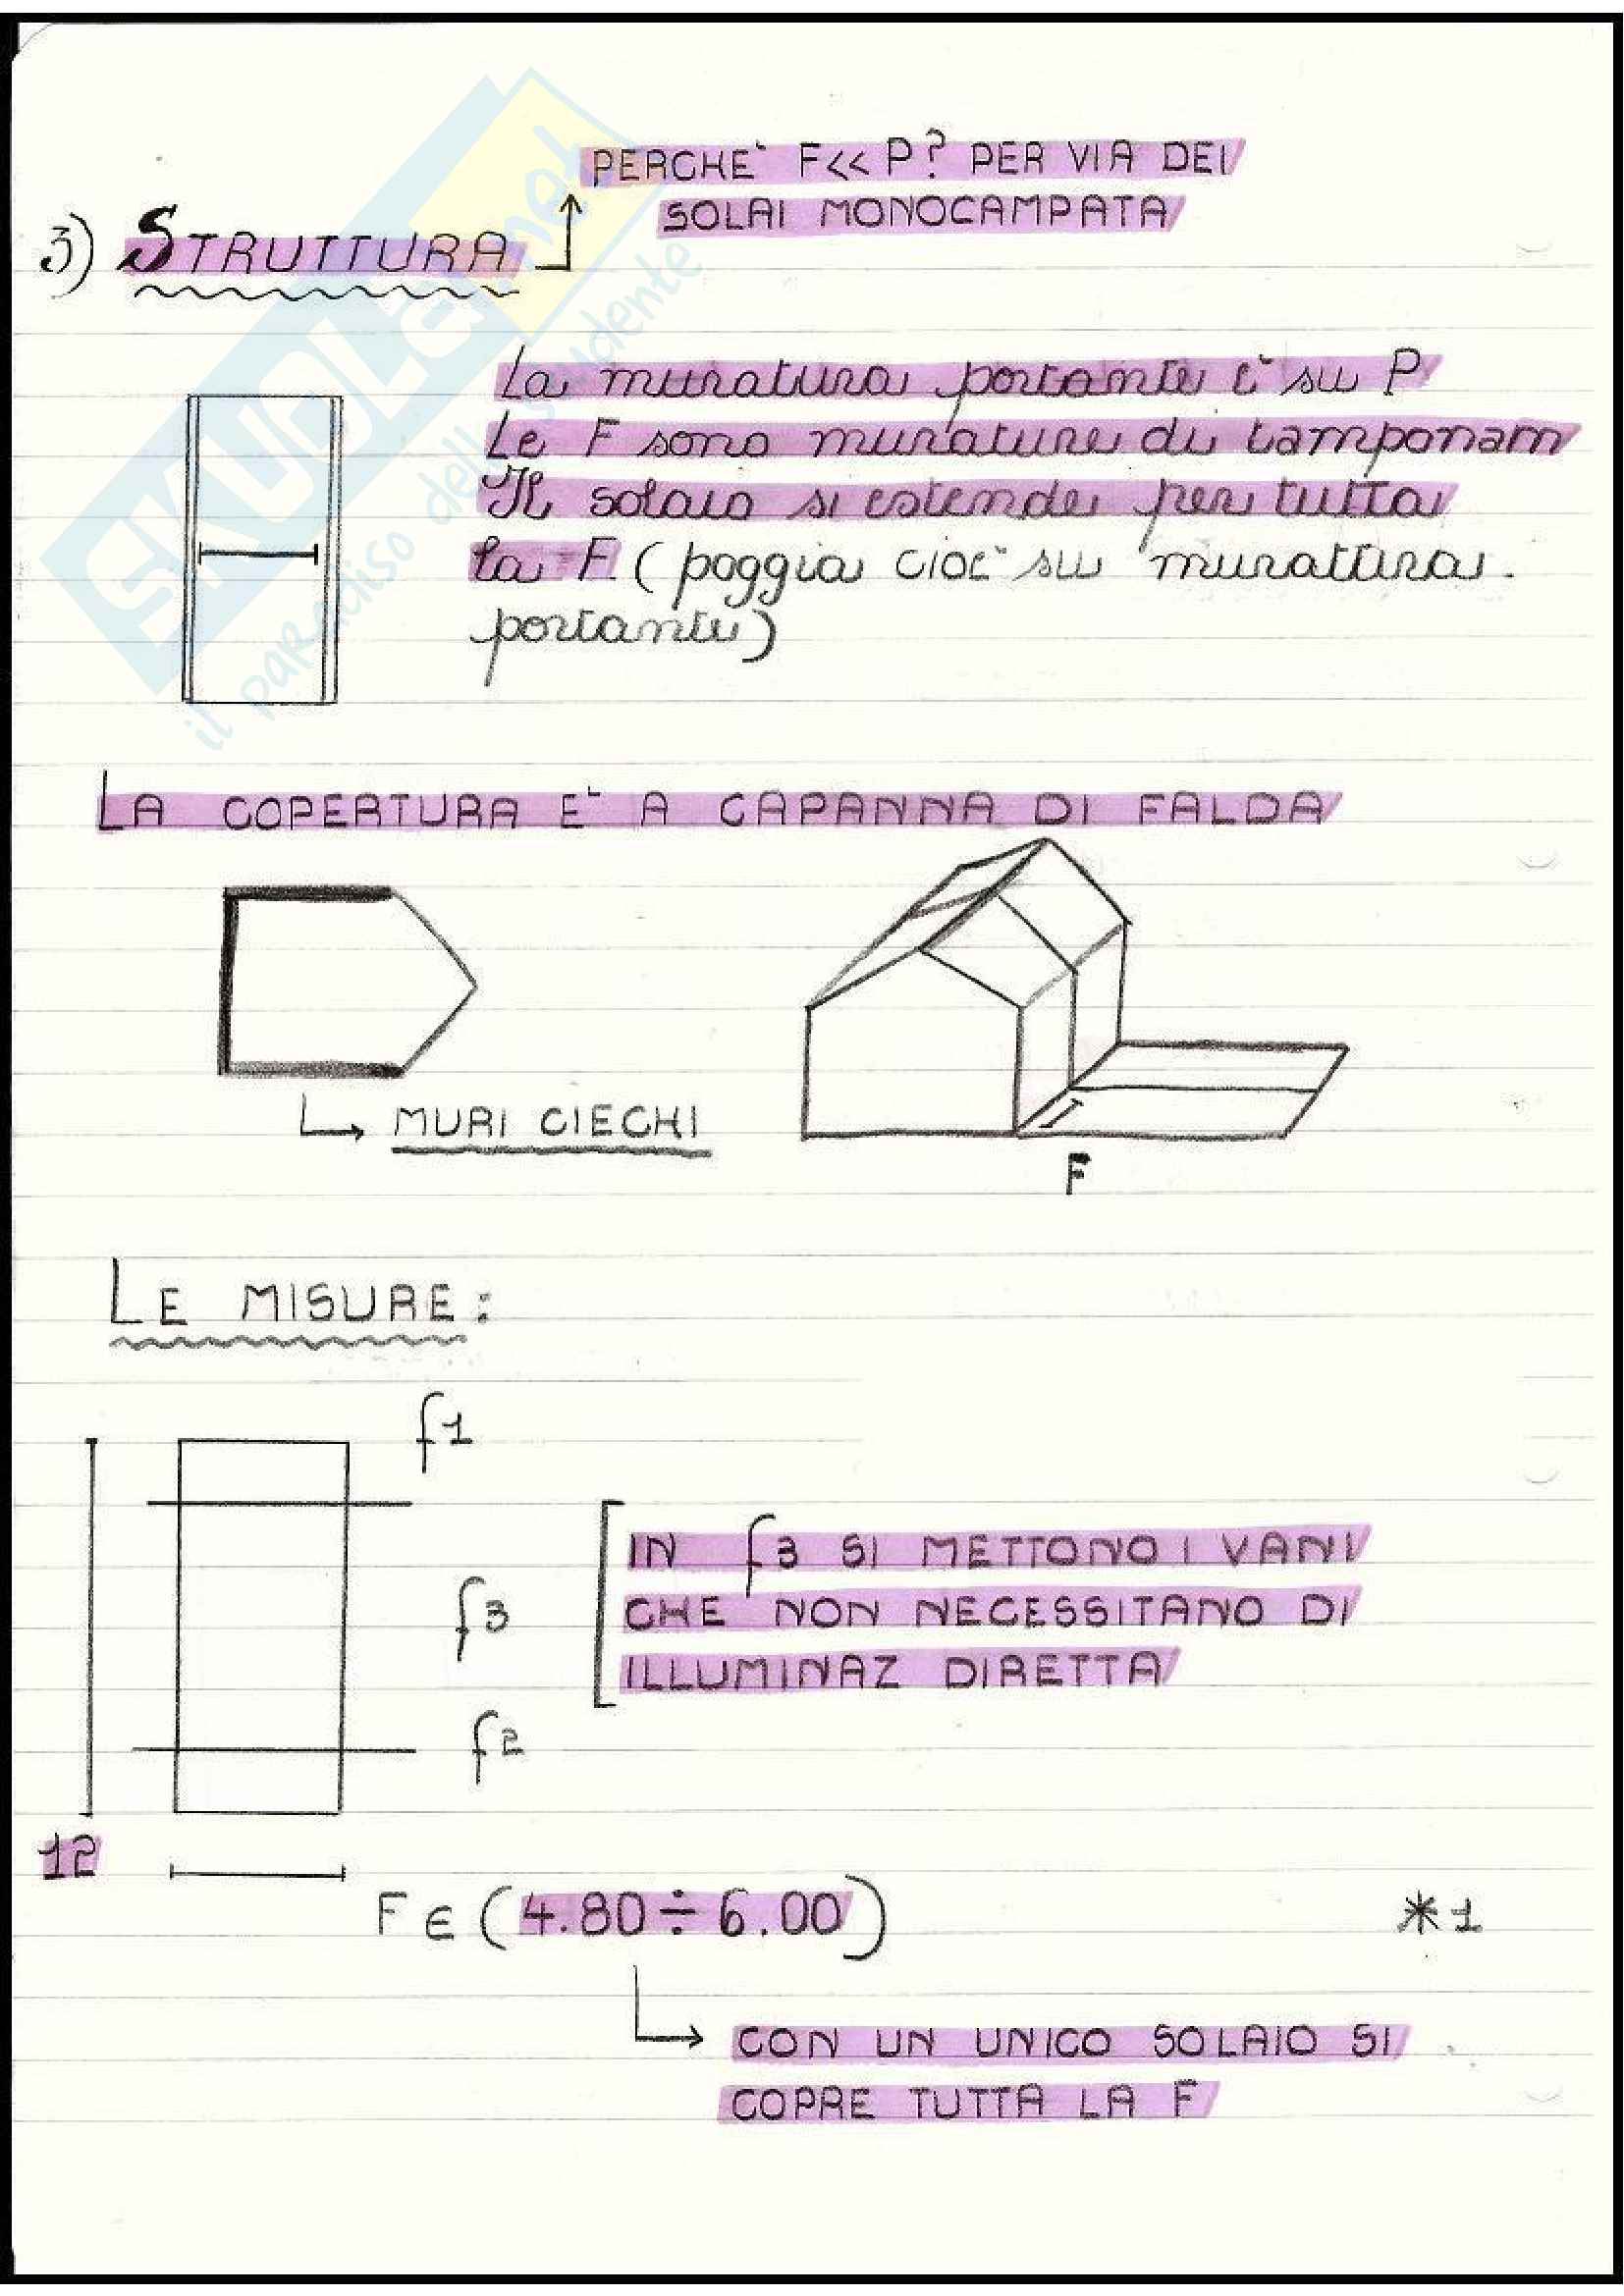 PERCHE' F<< P? PER VIA DEI
SOLAI MONOCAMPATA
3) STRUTTURA
La muratura portante è su P
Le F sono murature di tamponam
Il solaio si estende per tutta
la F (poggia cioè su murattura
portante)
LA COPERTURA E' A CAPANNA DI FALDA
MURI CIECHI
F
LE MISURE:
f1
IN f3 SI METTONO I VANI
CHE NON NECESSITANO DI
ILLUMINAZ DIRETTA
f3
f2
12
F ∈ (4.80 ÷ 6.00)
*1
CON UN UNICO SOLAIO SI
COPRE TUTTA LA F
SKUOLA.net
il paradiso dello studente